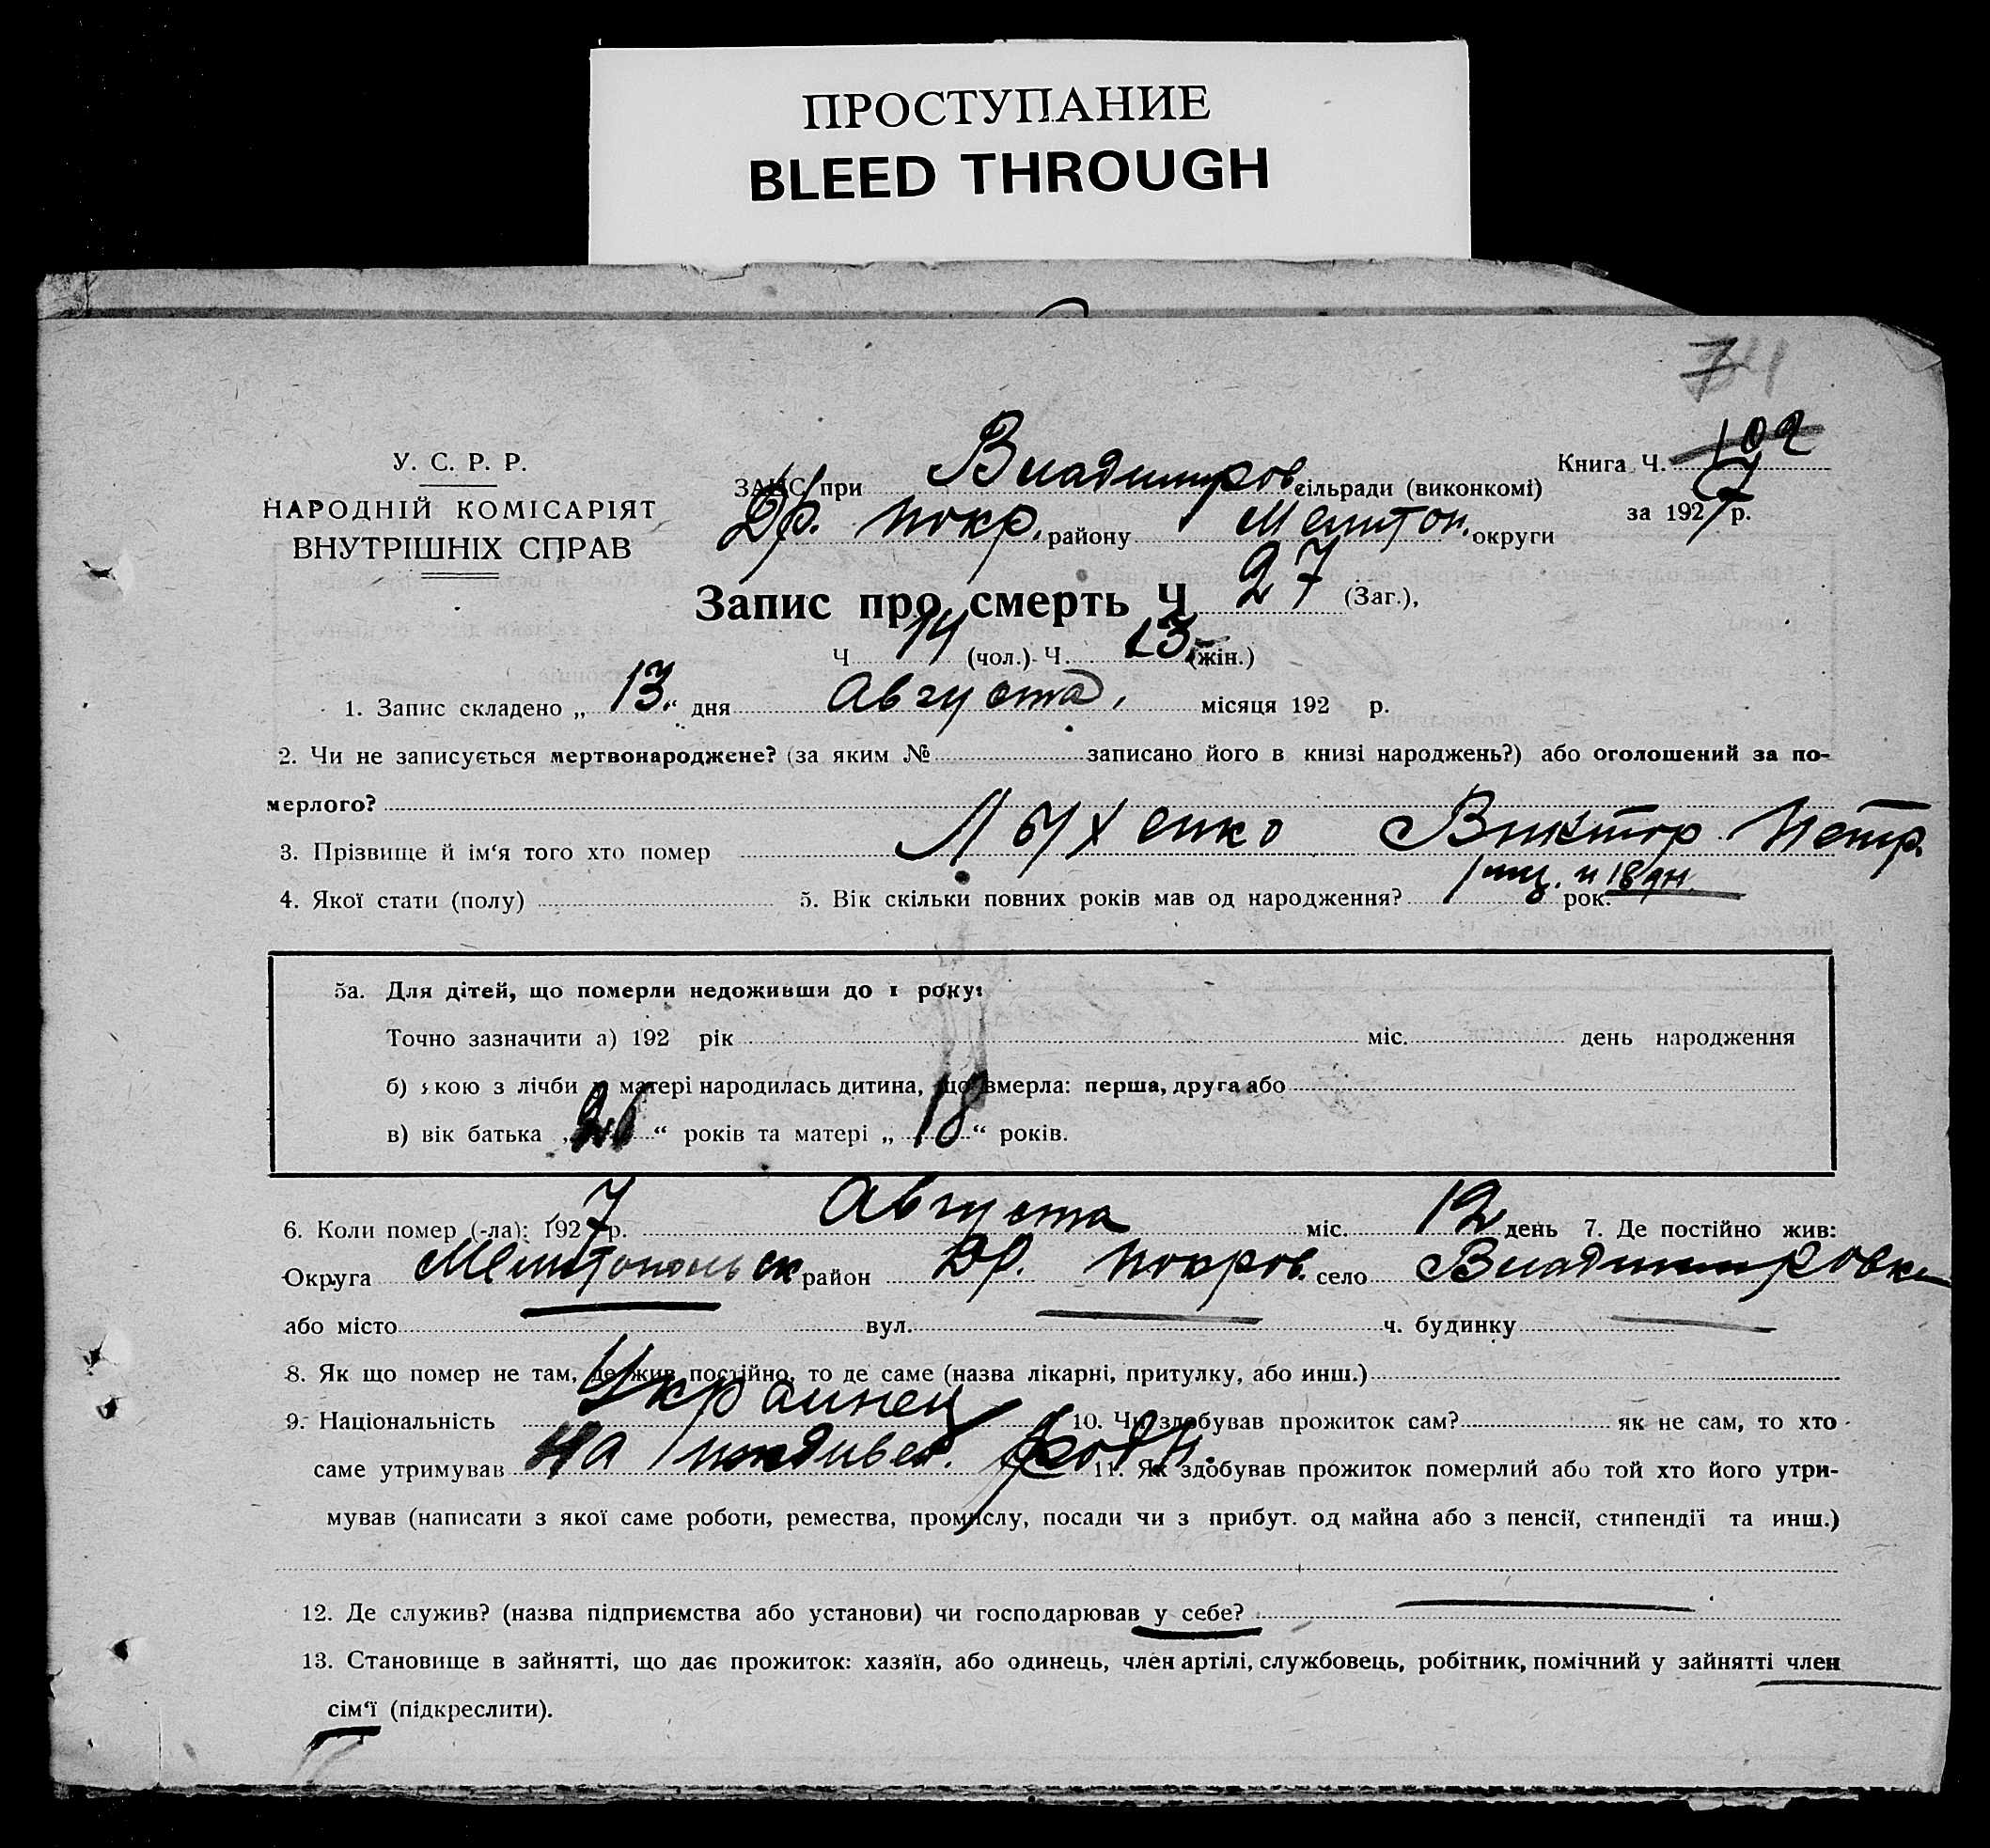 ПРОСТУПАНИЕ
BLEED THROUGH
У. С. Р. Р.
НАРОДНІЙ КОМІСАРІЯТ
ВНУТРІШНІХ СПРАВ
ЗАГС при Владимиров сільради (виконкомі)
Др. Покр. району Мелитоп. округи
Книга Ч. 102
за 1927 р.
Запис про смерть Ч 27 (Заг.),
Ч 14 (чол.) Ч. 13 (жін.)
1. Запис складено „ 13 “ дня Августа, місяця 192 р.
2. Чи не записується мертвонароджене? (за яким № записано його в книзі народжень?) або оголошений за по-
мерлого?
3. Прізвище й ім‘я того хто помер Лыхенко Виктор Петр.
4. Якої стати (полу) 5. Вік скільки повних років мав од народження? 1 мц. и 18 дн. рок.
5а. Для дітей, що померли недоживши до 1 року:
Точно зазначити а) 192 рік міс. день народження
б) якою з лічби у матері народилась дитина, що вмерла: перша, друга або
в) вік батька „ “ років та матері „ 18 “ років.
6. Коли помер (-ла): 1927 р. Августа міс. 12 день 7. Де постійно жив:
Округа Мелитопольск район Др. Покров. село Владимировка
або місто вул. ч. будинку
8. Як що помер не там, де жив постійно, то де саме (назва лікарні, притулку, або инш.)
9. Національність Украинец 10. Чи здобував прожиток сам? як не сам, то хто
саме утримував На иждивен. родит. 11. Як здобував прожиток померлий або той хто його утри-
мував (написати з якої саме роботи, ремества, промислу, посади чи з прибут. од майна або з пенсії, стипендії та инш.)
12. Де служив? (назва підприємства або установи) чи господарював у себе?
13. Становище в зайнятті, що дає прожиток: хазяїн, або одинець, член артілі, службовець, робітник, помічний у зайнятті член
сім‘ї (підкреслити).